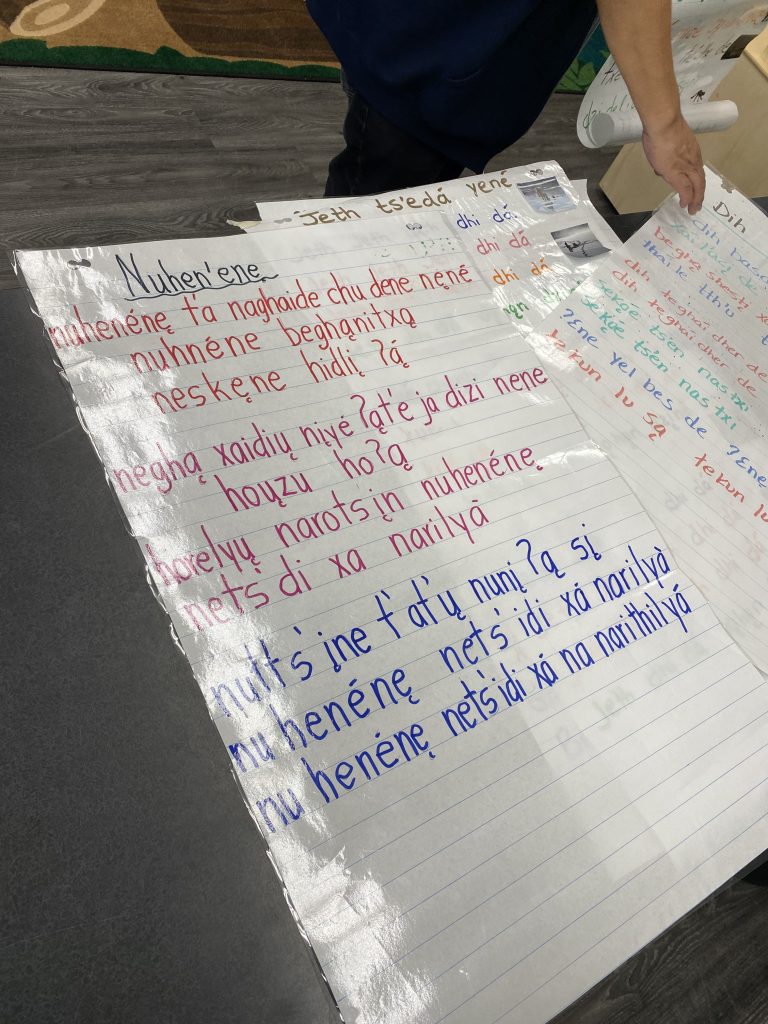 Nuhen'ene
nuhenénę t'a naghaide chu dene nęné
nuhnéne beghąnitxą
neskęne hidlį ʔą́
neghą xaidių nįyé ʔąt'e ja dizi nene
hoųzu hoʔą
horelyų narotsįn nuhenénę
nets'di xa narilyà
nutts'įne t'at'ų nunįʔą sį
nuhenénę nets'idi xá narilyà
nu henénę nets'idi xá na narithilyá
Jeth ts'edá yené
dhi dá
dhi dá
dhi dá
Dih
dih
thaik tth'u
dih teghai dher de
dih teghai dher de
sekǫé tsén nastxi
sekǫé tsén nastxi
ʔɛne yel bes de ʔɛnę
tekun lu są tekun lu